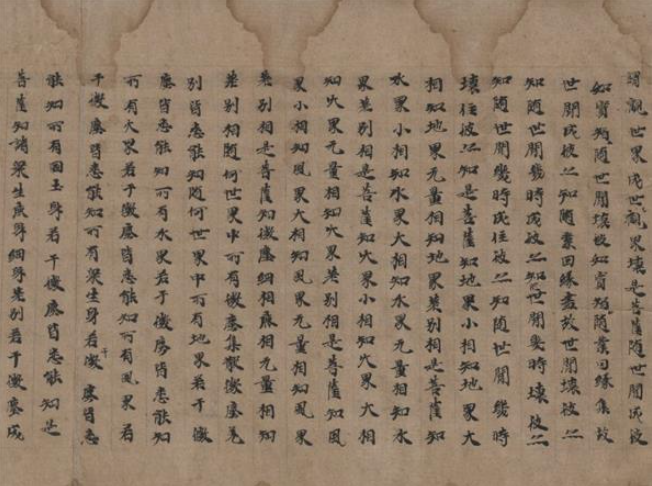 謂觀世界成世觀界壞是菩薩隨世間成彼
如實知隨世間壞彼如實知隨業因緣集故
世間成彼亦知隨業因緣盡故世間壞彼亦
知隨世間幾時成彼亦知世間幾時壞彼亦
知隨世間幾時成住彼亦知隨世間幾時
壞住彼亦知是菩薩知地界小相知地界大
相知地界无量相知地界差別相是菩薩知
水界小相知水界大相知水界无量相知水
界差別相是菩薩知火界小相知火界大相
知火界无量相知火界差別相是菩薩知風
界小相知風界大相知風界无量相知風界
差別相是菩薩知微塵細相麁相无量相知
差別相隨何世界中所有微塵集散微塵差
別皆悉能知隨何世界中所有地界若干微
塵皆悉能知所有水界若干微塵皆悉能知
所有火界若干微塵皆悉能知所有風界若
干微塵皆悉能知所有眾生身若干微塵皆悉
能知所有國土身若干微塵皆悉能知是
菩薩知諸眾生麁身細身差別若干微塵成